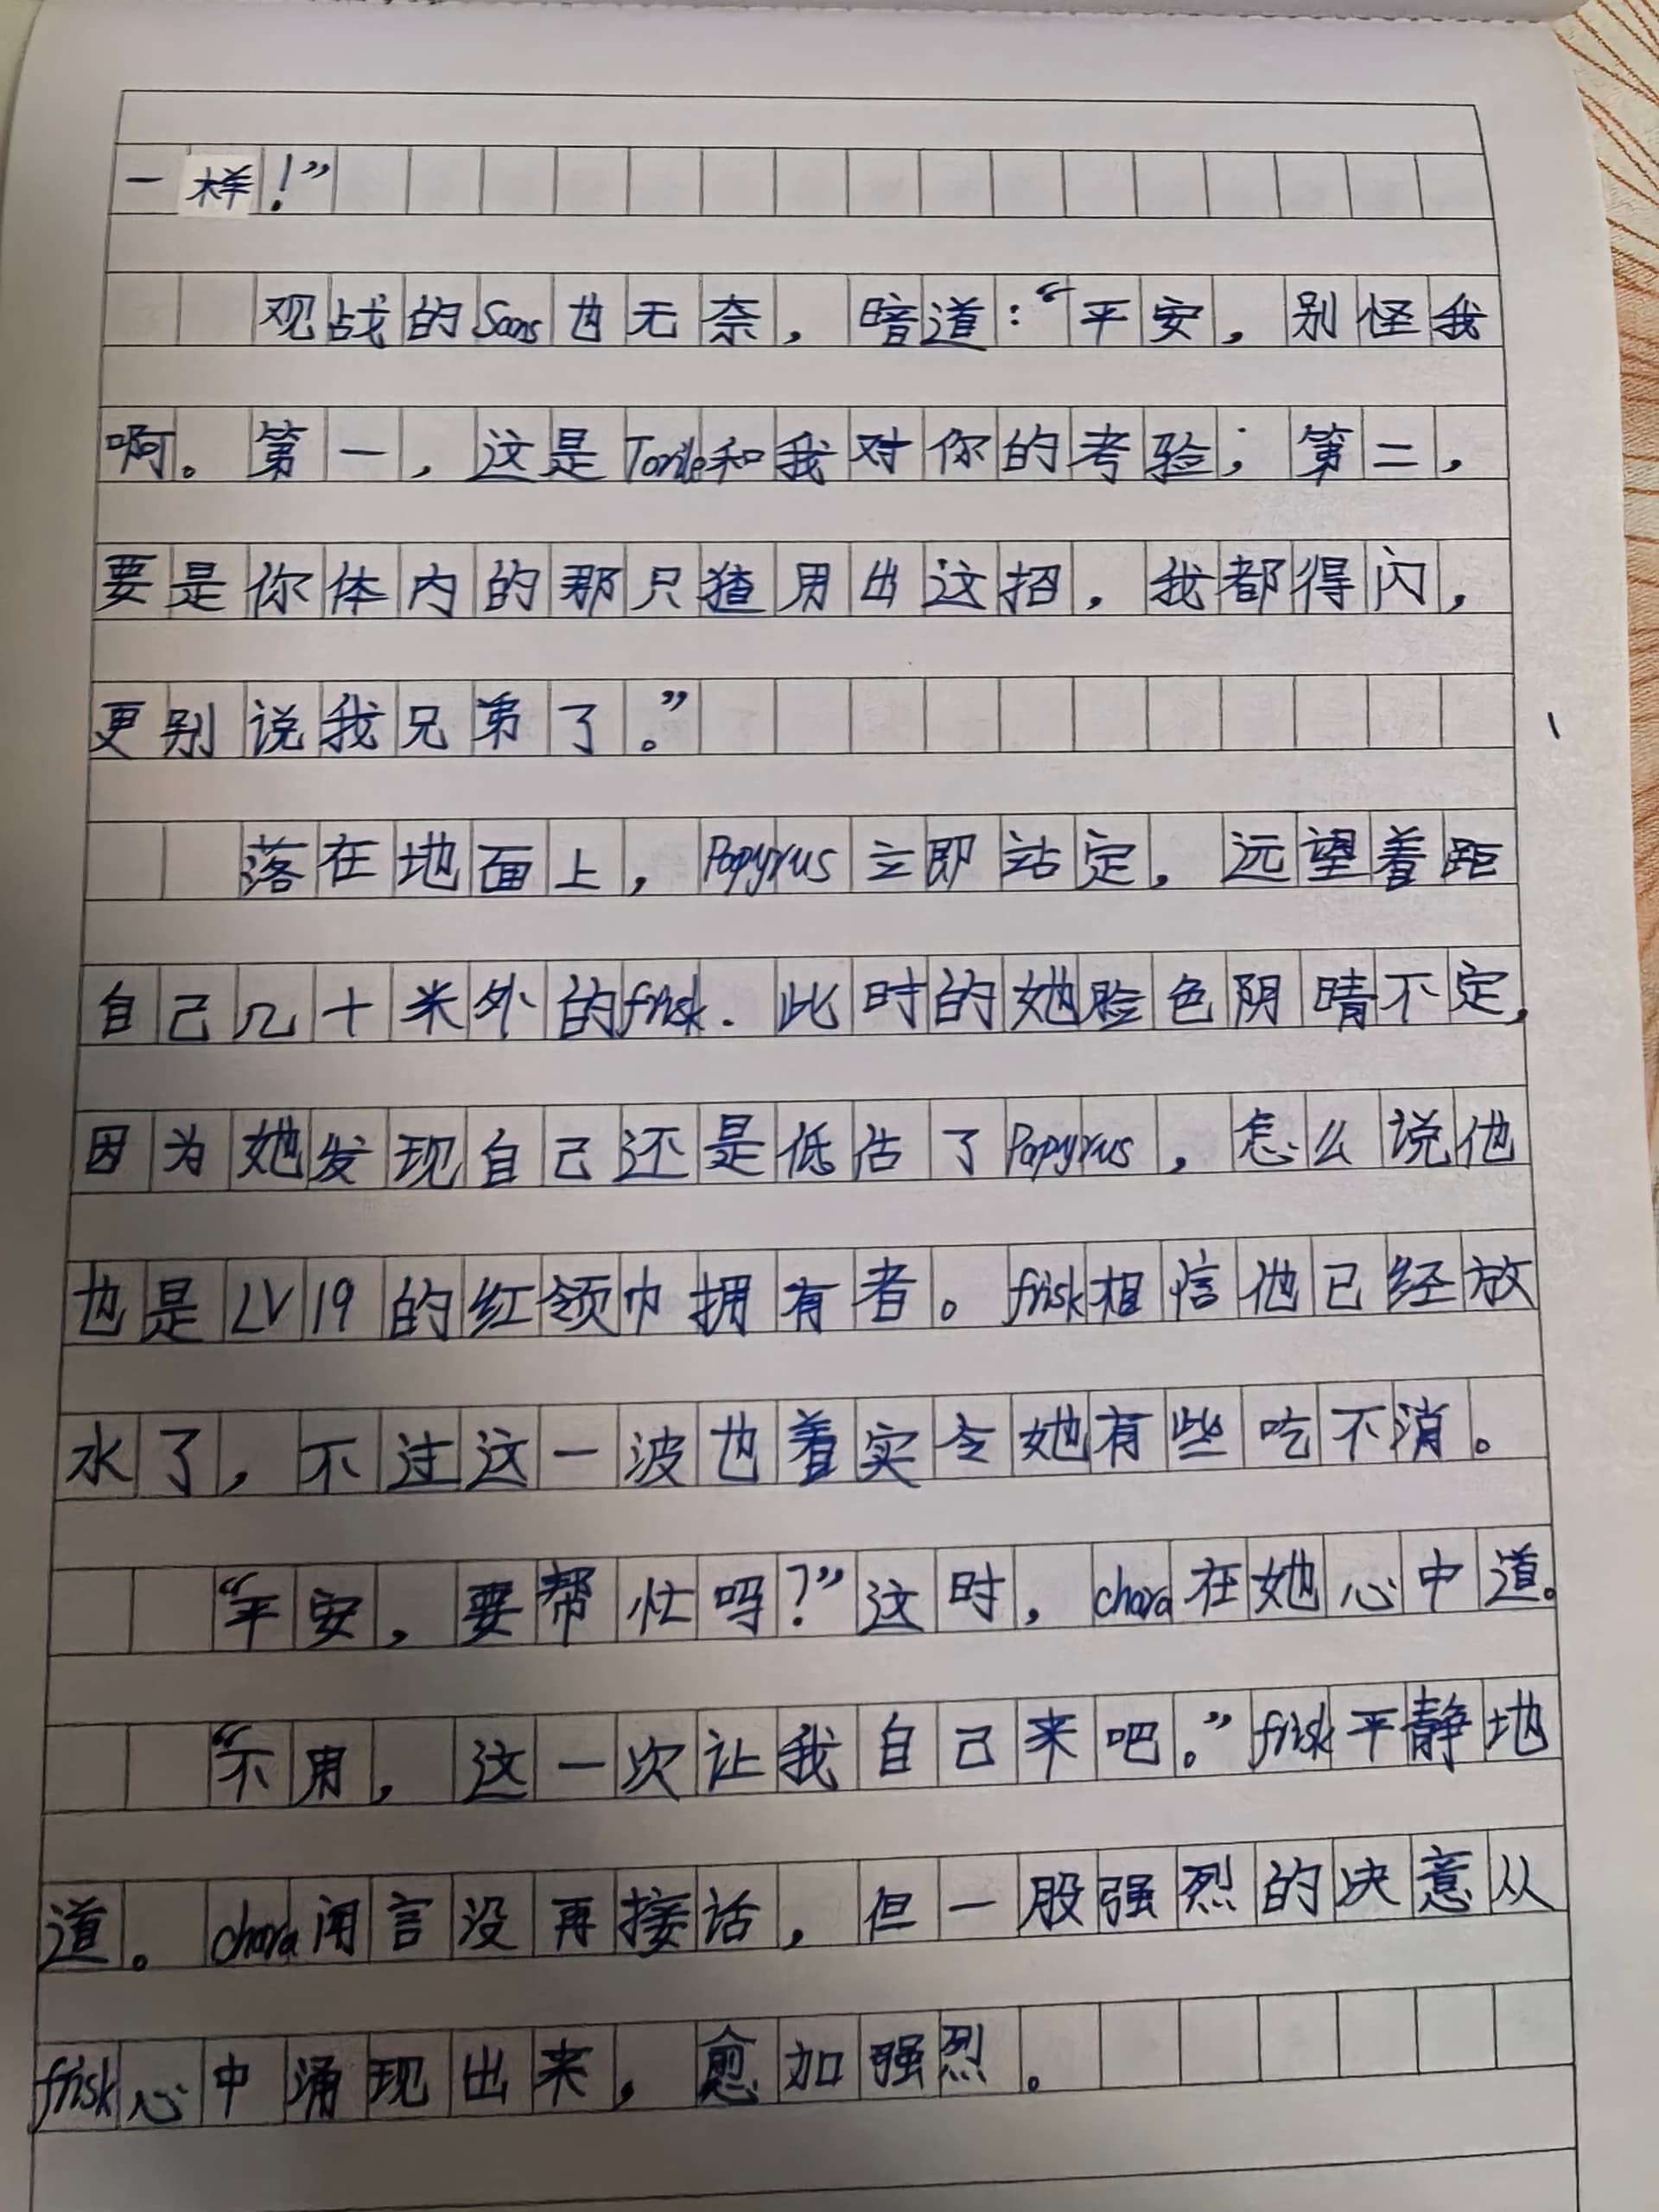 一样！”
观战的Sans也无奈，暗道：“平安，别怪我
啊。第一，这是Toriel和我对你的考验；第二，
要是你体内的那只猹用出这招，我都得闪，
更别说我兄弟了。”
落在地面上，Papyrus立即站定，远望着距
自己几十米外的frisk.此时的她脸色阴晴不定，
因为她发现自己还是低估了Papyrus，怎么说他
也是LV19的红领巾拥有者。frisk相信他已经放
水了，不过这一波也着实令她有些吃不消。
“平安，要帮忙吗？”这时，chara在她心中道。
“不用，这一次让我自己来吧。”frisk平静地
道。chara闻言没再接话，但一股强烈的决意从
frisk心中涌现出来，愈加强烈。